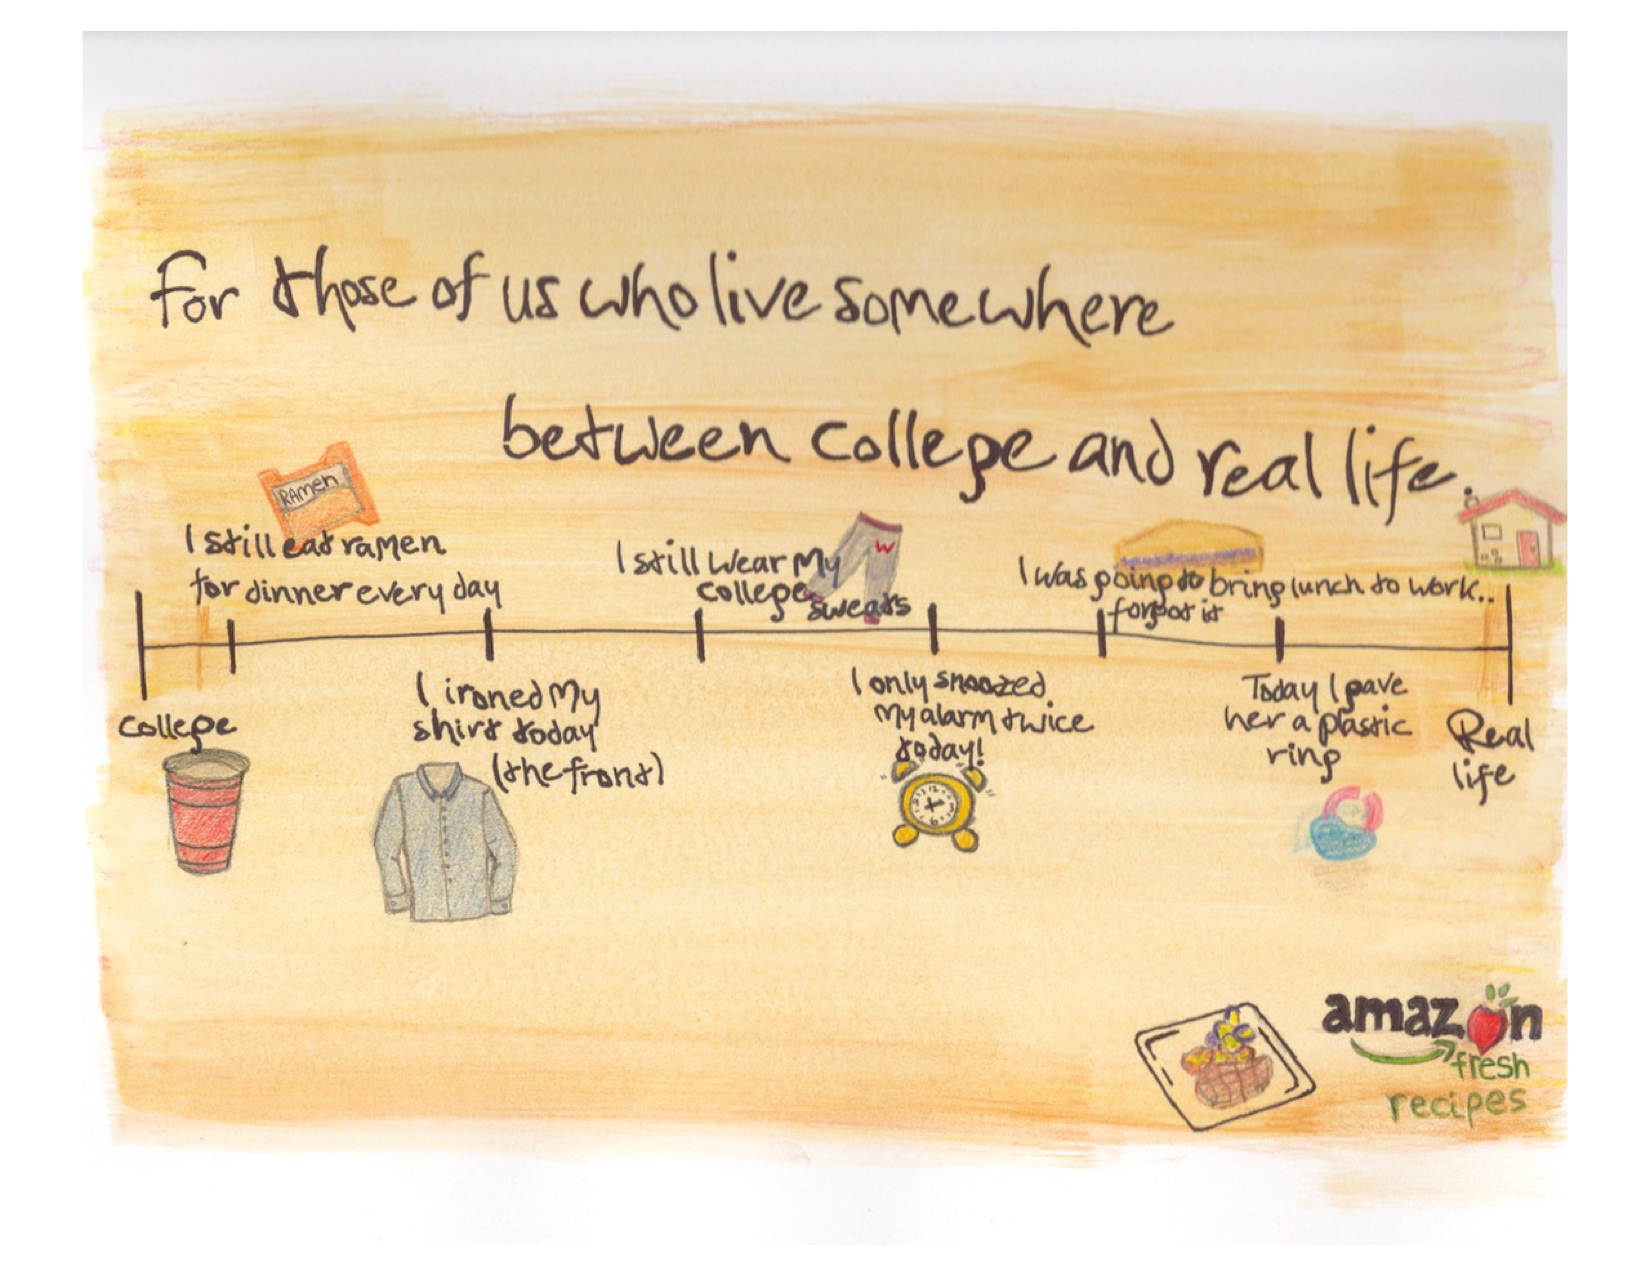 for those of us who live somewhere
between college and real life.
RAMEN
I still eat ramen
for dinner every day
I still wear my
college
sweats
W
I was going to bring lunch to work..
forgot it
college
I ironed my
shirt today
(the front)
I only snoozed
my alarm twice
today!
Today I gave
her a plastic
ring
Real
life
amazon
fresh
recipes